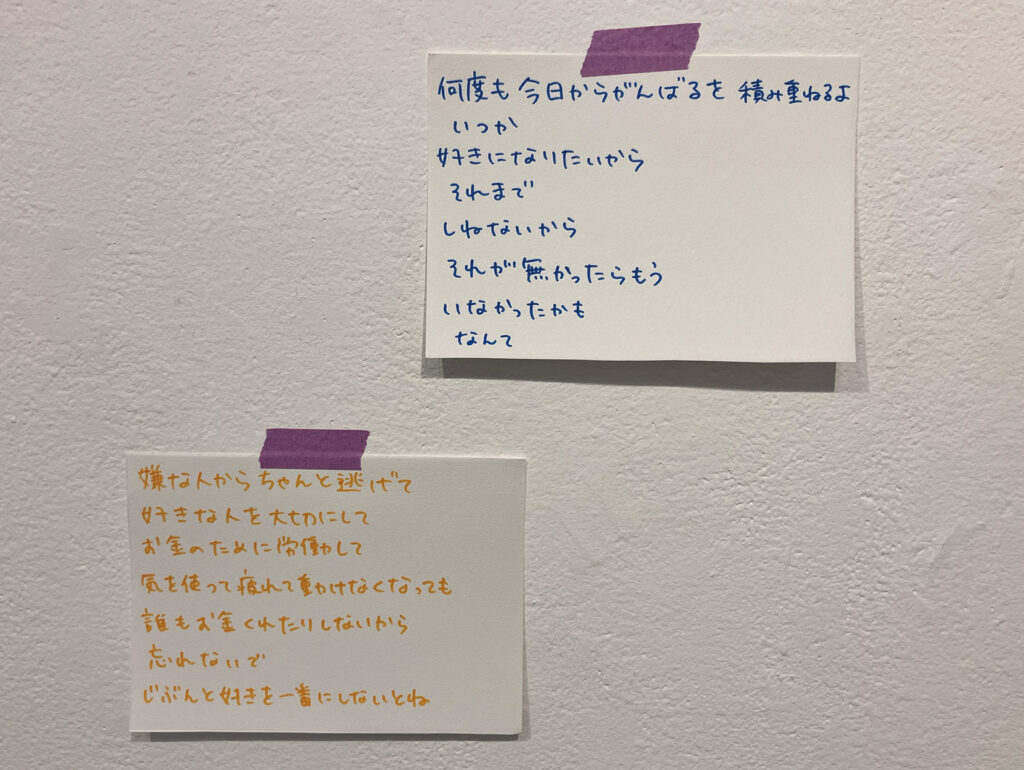 何度も今日からがんばるを 積み重ねるよ
いつか
好きになりたいから
それまで
しねないから
それが無かったらもう
いなかったかも
なんて
嫌な人からちゃんと逃げて
好きな人を大切にして
お金のために労働して
気を使って疲れて動かけなくなっても
誰もお金くれたりしないから
忘れないで
じぶんと好きを一番にしないとね